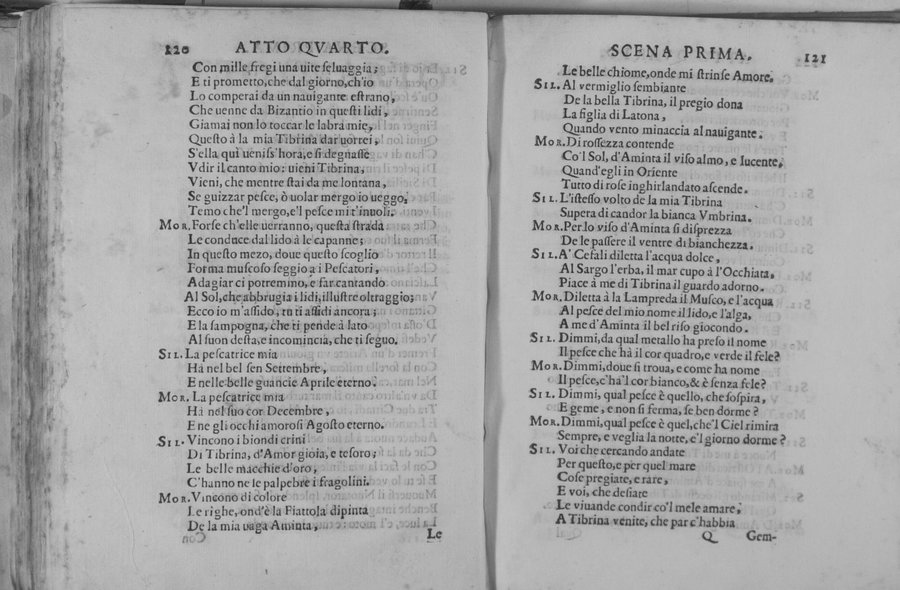 120 ATTO QVARTO.
Con mille fregi una uite seluaggia;
E ti prometto, che dal giorno, ch'io
Lo comperai da un nauigante estrano,
Che uenne da Bizantio in questi lidi,
Giamai non lo toccar le labra mie,
Questo à la mia Tibrina dar uorrei,
S'ella qui ueniss'hora, e si degnasse
Vdir il canto mio: uieni Tibrina,
Vieni, che mentre stai da me lontana,
Se guizzar pesce, ò uolar mergo io ueggo,
Temo che'l mergo, e'l pesce mi t'inuoli.
MOR. Forse ch'elle uerranno, questa strada
Le conduce dal lido à le capanne;
In questo mezo, doue questo scoglio
Forma muscoso seggio à i Pescatori,
Adagiar ci potremino, e far cantando
Al Sol, che abbrugia i lidi, illustre oltraggio;
Ecco io m'assido, tu ti assidi ancora;
E la sampogna, che ti pende à lato
Al suon desta, e incomincia, che ti seguo.
SIL. La pescatrice mia
Hà nel bel sen Settembre,
E nelle belle guancie Aprile eterno.
MOR. La pescatrice mia
Hà nel suo cor Decembre,
E ne gli occhi amorosi Agosto eterno.
SIL. Vincono i biondi crini
Di Tibrina, d'Amor gioia, e tesoro;
Le belle macchie d'oro,
C'hanno ne le palpebre i fragolini.
MOR. Vincono di colore
Le righe, ond'è la Fiattola dipinta
De la mia uaga Aminta,
Le
SCENA PRIMA. 121
Le belle chiome, onde mi strinse Amore.
SIL. Al vermiglio sembiante
De la bella Tibrina, il pregio dona
La figlia di Latona,
Quando vento minaccia al nauigante.
MOR. Di rossezza contende
Co'l Sol, d'Aminta il viso almo, e lucente,
Quand'egli in Oriente
Tutto di rose inghirlandato ascende.
SIL. L'istesso volto de la mia Tibrina
Supera di candor la bianca Vmbrina.
MOR. Per lo viso d'Aminta si disprezza
De le passere il ventre di bianchezza.
SIL. A' Cefali diletta l'acqua dolce,
Al Sargo l'erba, il mar cupo à l'Occhiata,
Piace à me di Tibrina il guardo adorno.
MOR. Diletta à la Lampreda il Musco, e l'acqua
Al pesce del mio nome il lido, e l'alga,
A me d'Aminta il bel riso giocondo.
SIL. Dimmi, da qual metallo ha preso il nome
Il pesce che hà il cor quadro, e verde il fele?
MOR. Dimmi, doue si troua, e come ha nome
Il pesce, c'hà'l cor bianco, & è senza fele?
SIL. Dimmi, qual pesce è quello, che sospira,
E geme, e non si ferma, se ben dorme?
MOR. Dimmi, qual pesce è quel, che'l Ciel rimira
Sempre, e veglia la notte, e'l giorno dorme?
SIL. Voi che cercando andate
Per questo, e per quel mare
Cose pregiate, e rare,
E voi, che desiate
Le viuande condir co'l mele amare,
A Tibrina venite, che par c'habbia
Q Gem-